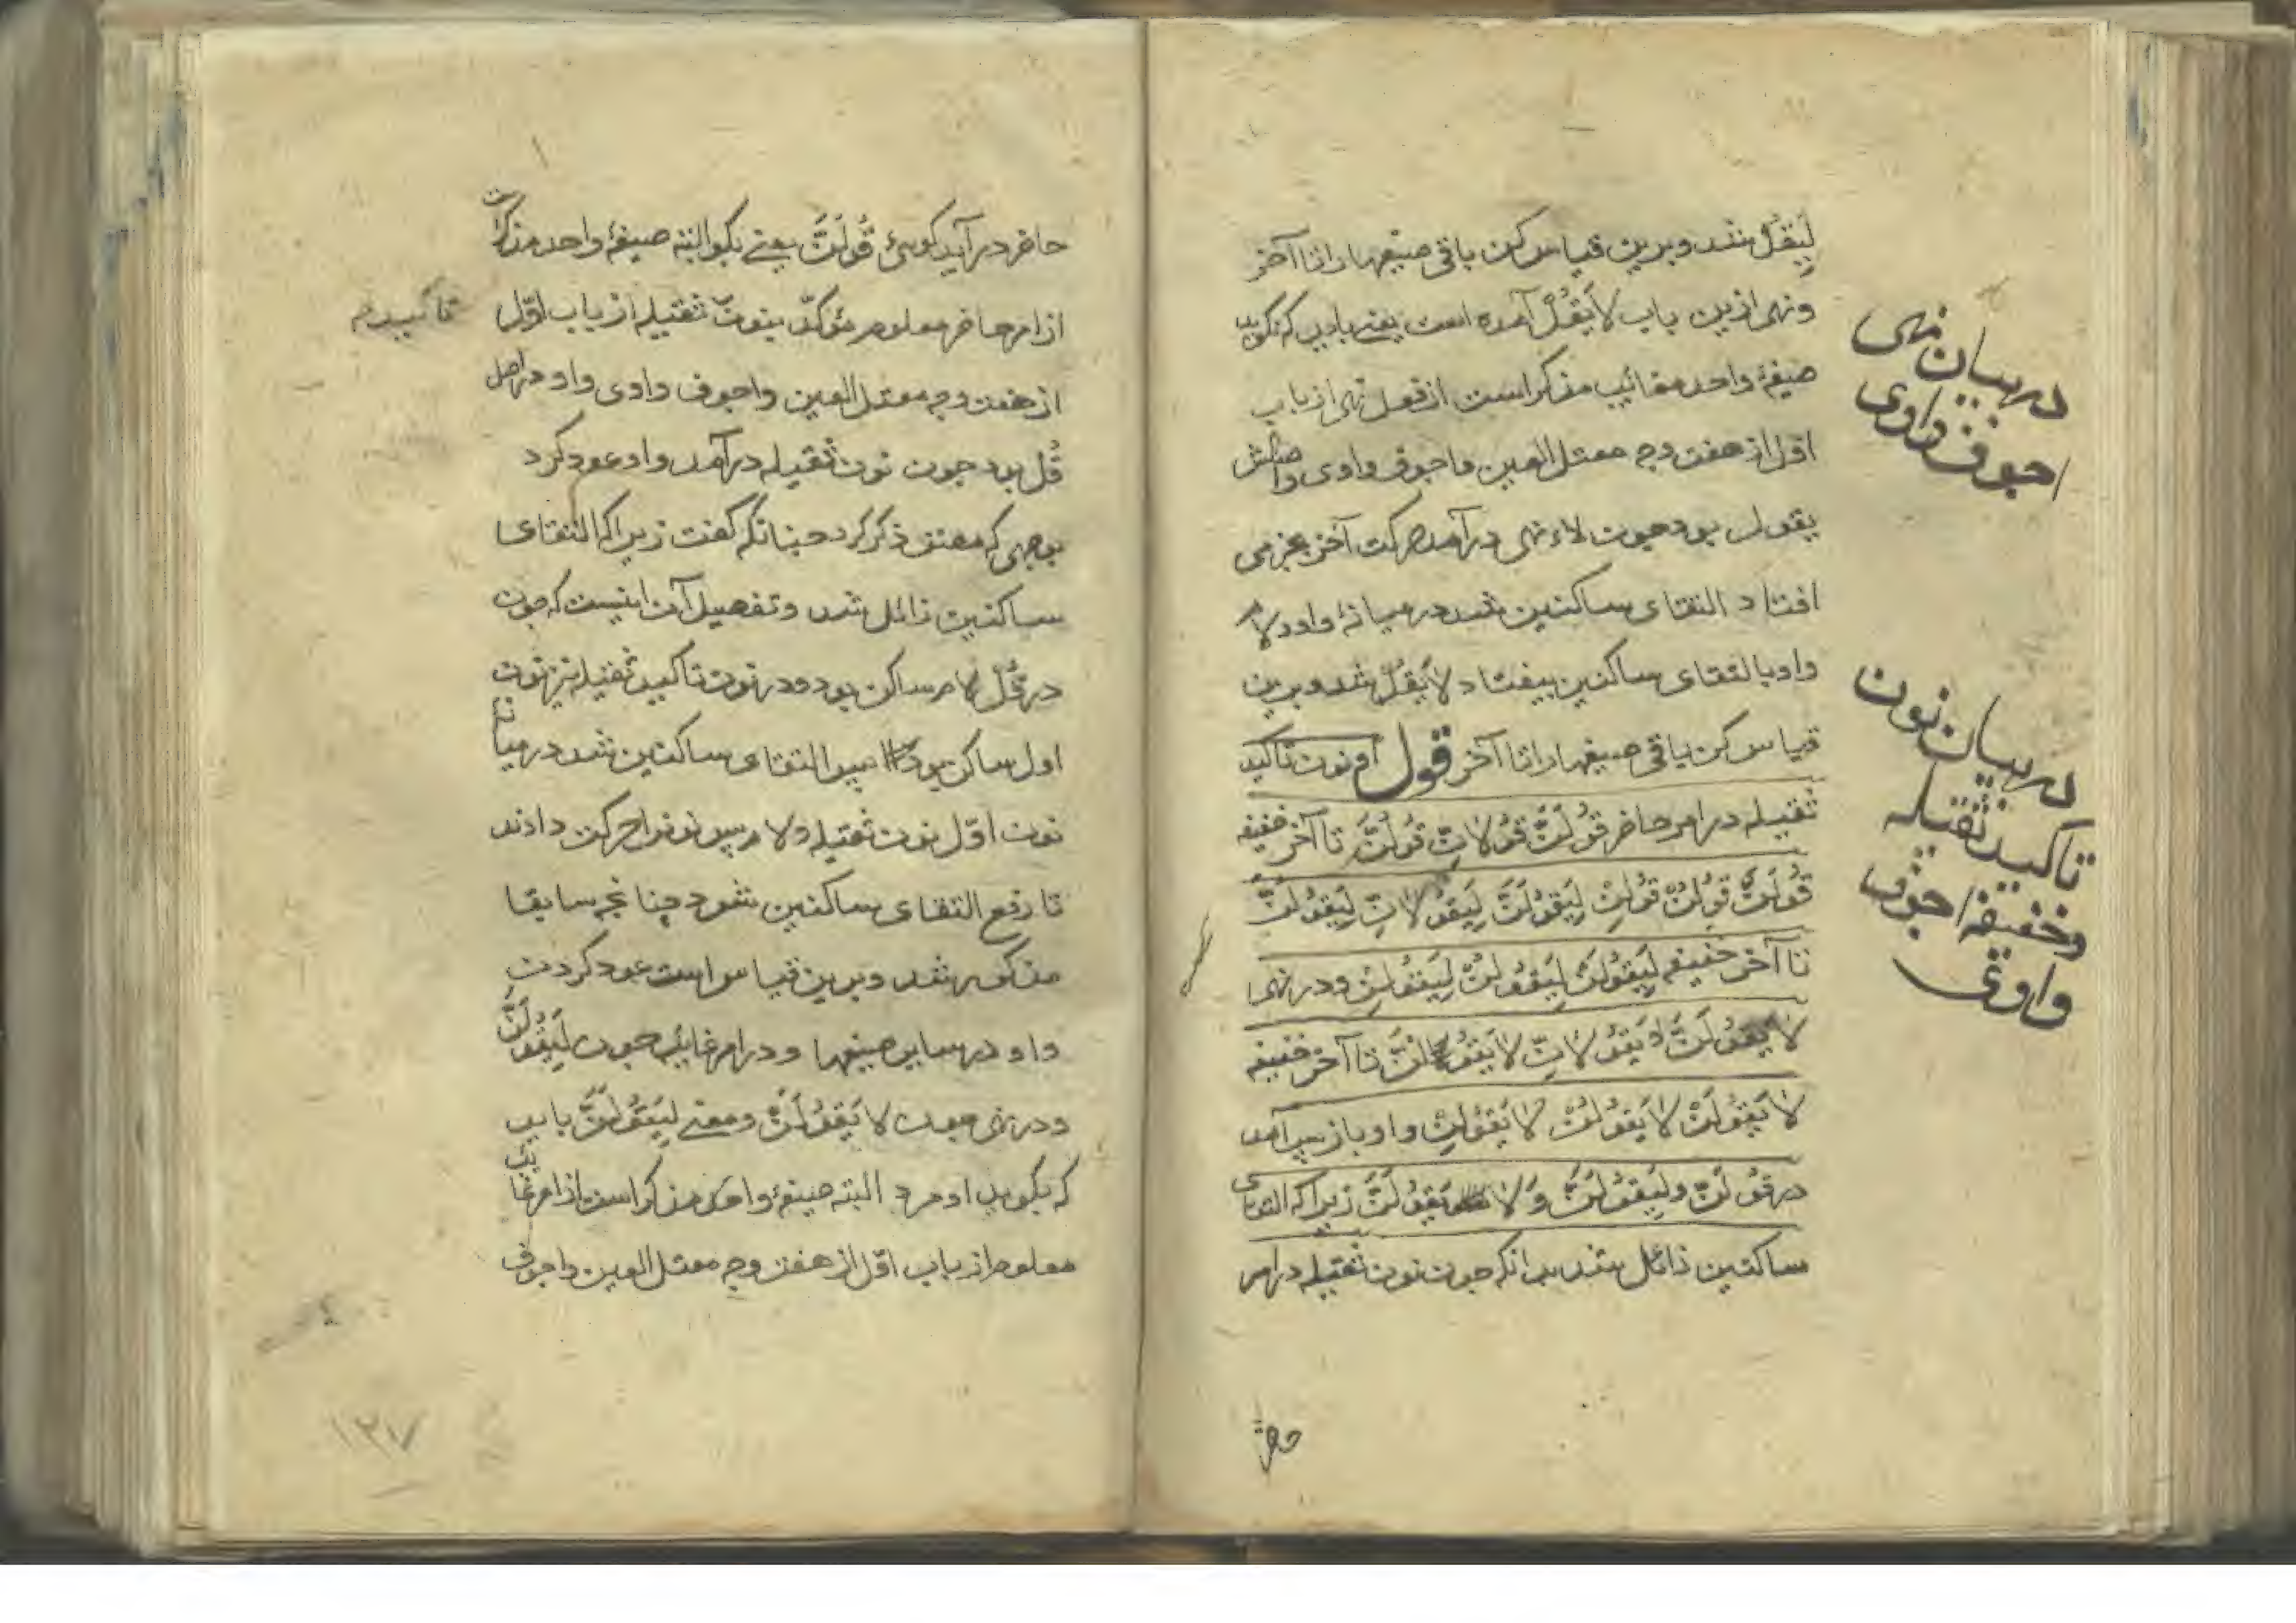 لِيَقُلْ شد و برین قیاس کن باقی صیغها را تا آخر
و نهی ازین باب لَا یَقُلْ آمده است یعنی باید که نگوید
صیغهٔ واحد مغائب مذکر است از فعل نهی از باب
اول از هفت وجه معتل العین و اجوف واوی و اصلش
یقول بود چون لاء نهی درآمد حرکت آخر بجزمی
افتاد التقای ساکنین شد درمیانهٔ واو و لام
واو بالتقای ساکنین بیفتاد لا یَقُلْ شد و برین
قیاس کن باقی صیغها را تا آخر قول او نون تاکید
ثقیله در امر حاضر قُولَنَّ قُولَانِّ قُولُنَّ تا آخر خفیفه
قُولَنْ قُولُنْ قُولِنْ لِيَقُولَنَّ لِيَقُولَانِّ لِيَقُولُنَّ
تا آخر خفیفه لِيَقُولَنْ لِيَقُولُنْ لِيَقُولِنْ و در نهی
لَا يَقُولَنَّ لَا يَقُولَانِّ لَا يَقُولُنَّ تا آخر خفیفه
لَا يَقُولَنْ لَا يَقُولُنْ لَا يَقُولِنْ واو باز پس آمد
در قُولَنَّ و لِيَقُولَنَّ وَ لَا يَقُولَنَّ زیرا که التقای
ساکنین زائل شد بدانکه چون نون ثقیله در امر
در بیان نهی
اجوف واوی
در بیان نون
تاکید ثقیله
و خفیفه اجوف
واوی
حاضر
حاضر درآید گویی قُولَنَّ یعنی بگو البته صیغهٔ واحد مذکر است
از امر حاضر معلوم مؤکد بنون ثقیله از باب اوّل
تاکید
از هفت وجه معتل العین و اجوف واوی واو در اصل
قُل بود چون نون ثقیله درآمد واو عود کرد
بوجهی که مصنف ذکر کرد چنانکه گفت زیرا که التقای
ساکنین زائل شد و تفصیل آن اینست که چون
در قُلْ لام ساکن بود و در نون تاکید ثقیله نیز نون
اول ساکن بود پس التقای ساکنین شد درمیانهٔ
نون اوّل نون ثقیله و لام پس نون را حرکت دادند
تا رفع التقای ساکنین شود چنانچه سابقا
مذکور شد و برین قیاس است عود کردن
واو در سایر صیغها و در امر غایب چون لِيَقُولَنَّ
و در نهی چون لَا يَقُولَنَّ و معنی لِيَقُولَنَّ باید
که بگوید او مرد البته صیغهٔ واحد مذکر است از امر غایب
معلوم از باب اوّل از هفت وجه معتل العین و اجوف
۱۳۷